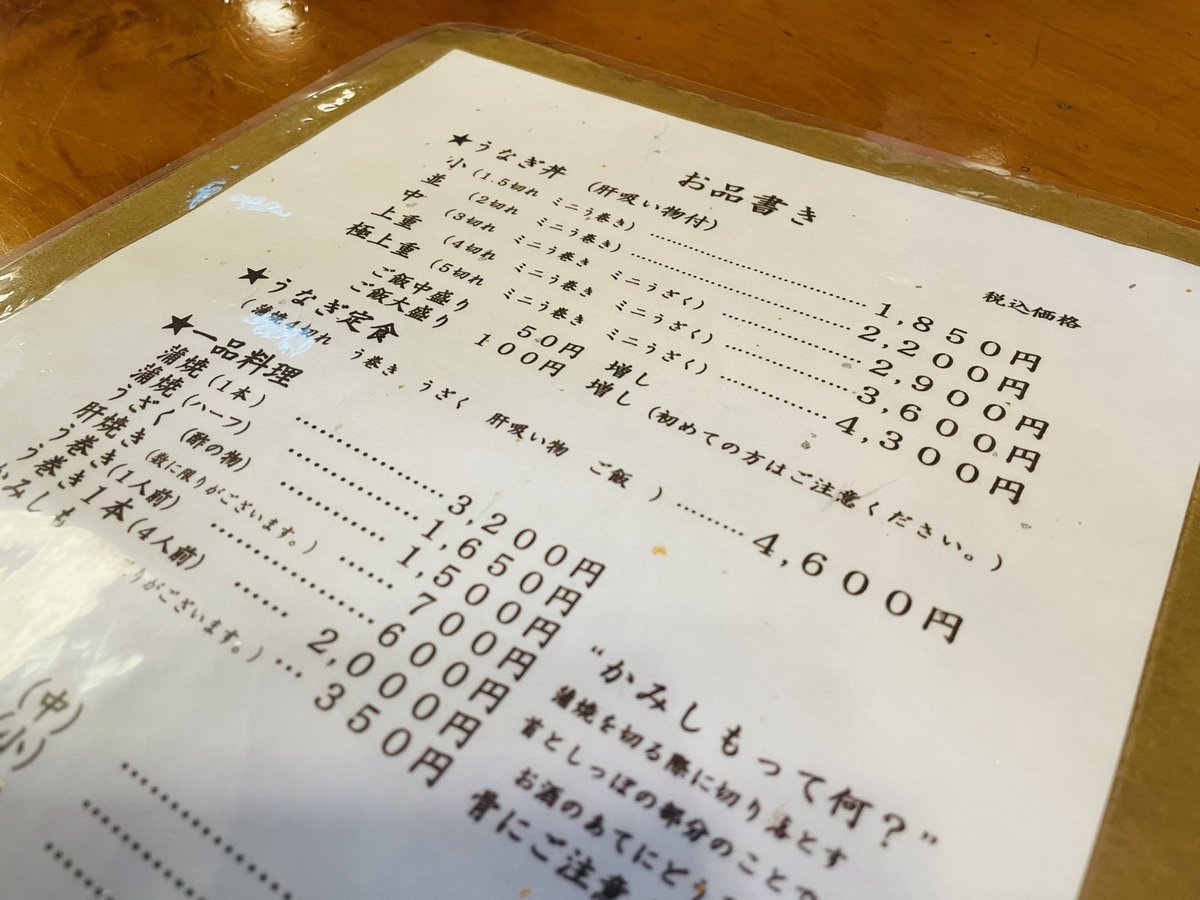 お品書き
税込価格
★うなぎ丼 (肝吸い物付)
小 (1.5切れ ミニう巻き) ……………… 1,850円
並 (2切れ ミニう巻き) ……………… 2,200円
中 (3切れ ミニう巻き ミニうざく) ………… 2,900円
上重 (4切れ ミニう巻き ミニうざく) ………… 3,600円
極上重 (5切れ ミニう巻き ミニうざく) ………… 4,300円
ご飯中盛り 50円 増し
ご飯大盛り 100円 増し (初めての方はご注意ください。)
★うなぎ定食
(蒲焼4切れ う巻き うざく 肝吸い物 ご飯 ) ……… 4,600円
★一品料理
蒲焼 (1本) ……………… 3,200円
蒲焼 (ハーフ) ……………… 1,650円
うざく (酢の物) ……………… 1,500円
肝焼き (数に限りがございます。) …… 700円
う巻き (1人前) ……………… 600円
う巻き1本 (4人前) …… 2,000円
かみしも りがございます。) … 350円
(中) ………………
(小) ………………
"かみしもって何？"
蒲焼を切る際に切り落とす
首としっぽの部分のことで
お酒のあてにどう
骨にご注意